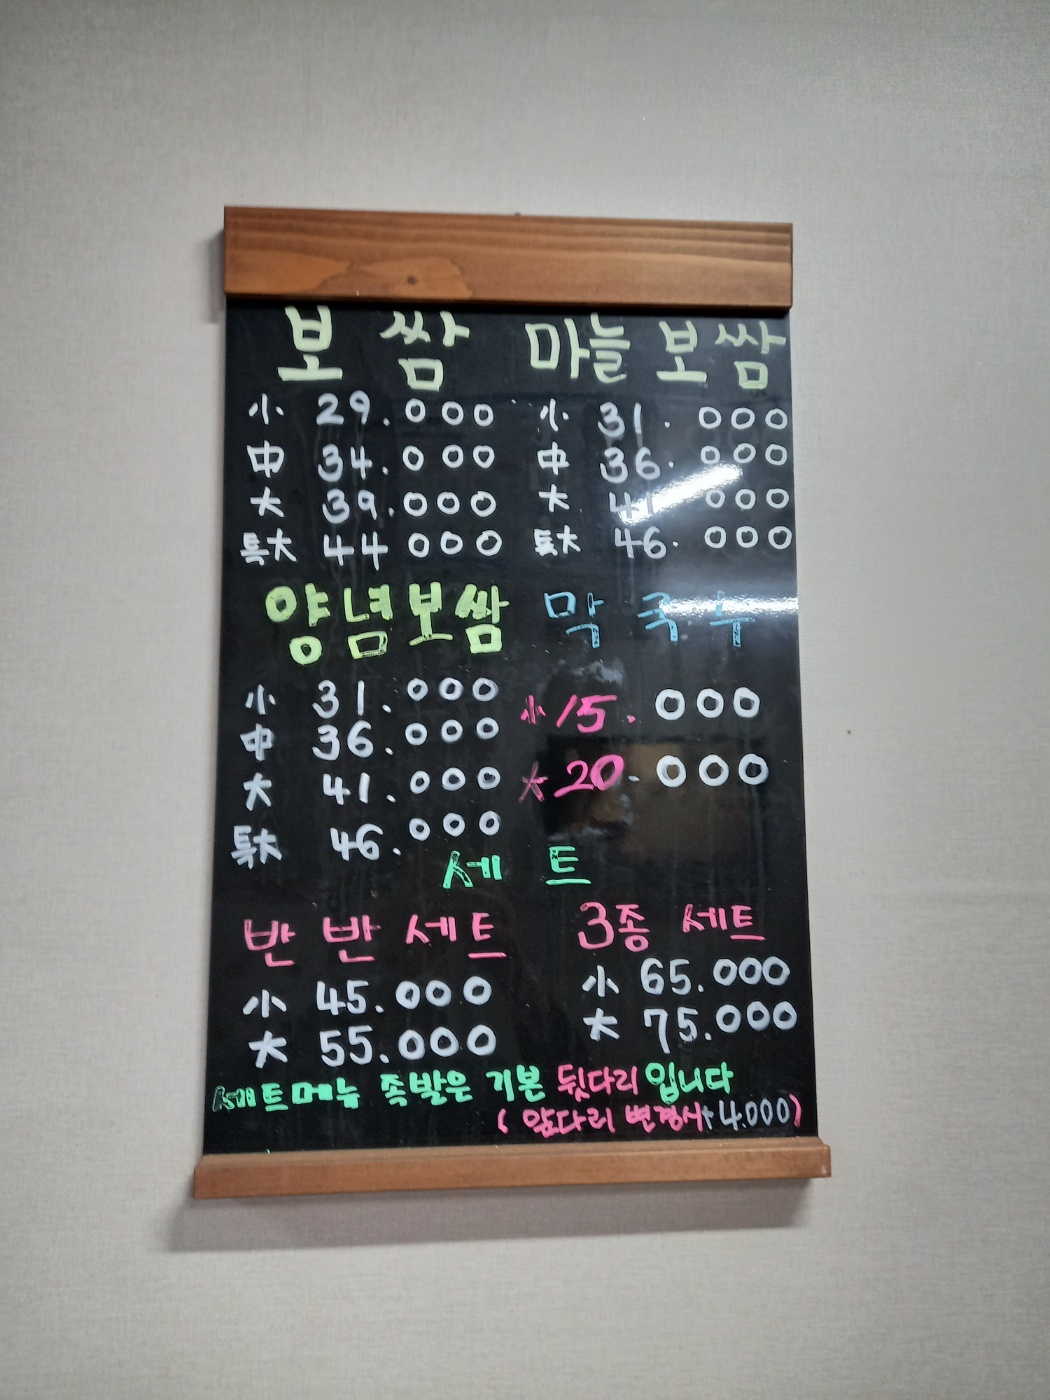 보 쌈
小 29.000
中 34.000
大 39.000
特大 44.000
마늘 보쌈
小 31.000
中 36.000
大 41.000
特大 46.000
양념보쌈
小 31.000
中 36.000
大 41.000
特大 46.000
막 국 수
小 15.000
大 20.000
세 트
반 반 세트
小 45.000
大 55.000
3종 세트
小 65.000
大 75.000
세트메뉴 족발은 기본 뒷다리 입니다
( 앞다리 변경시+4.000)